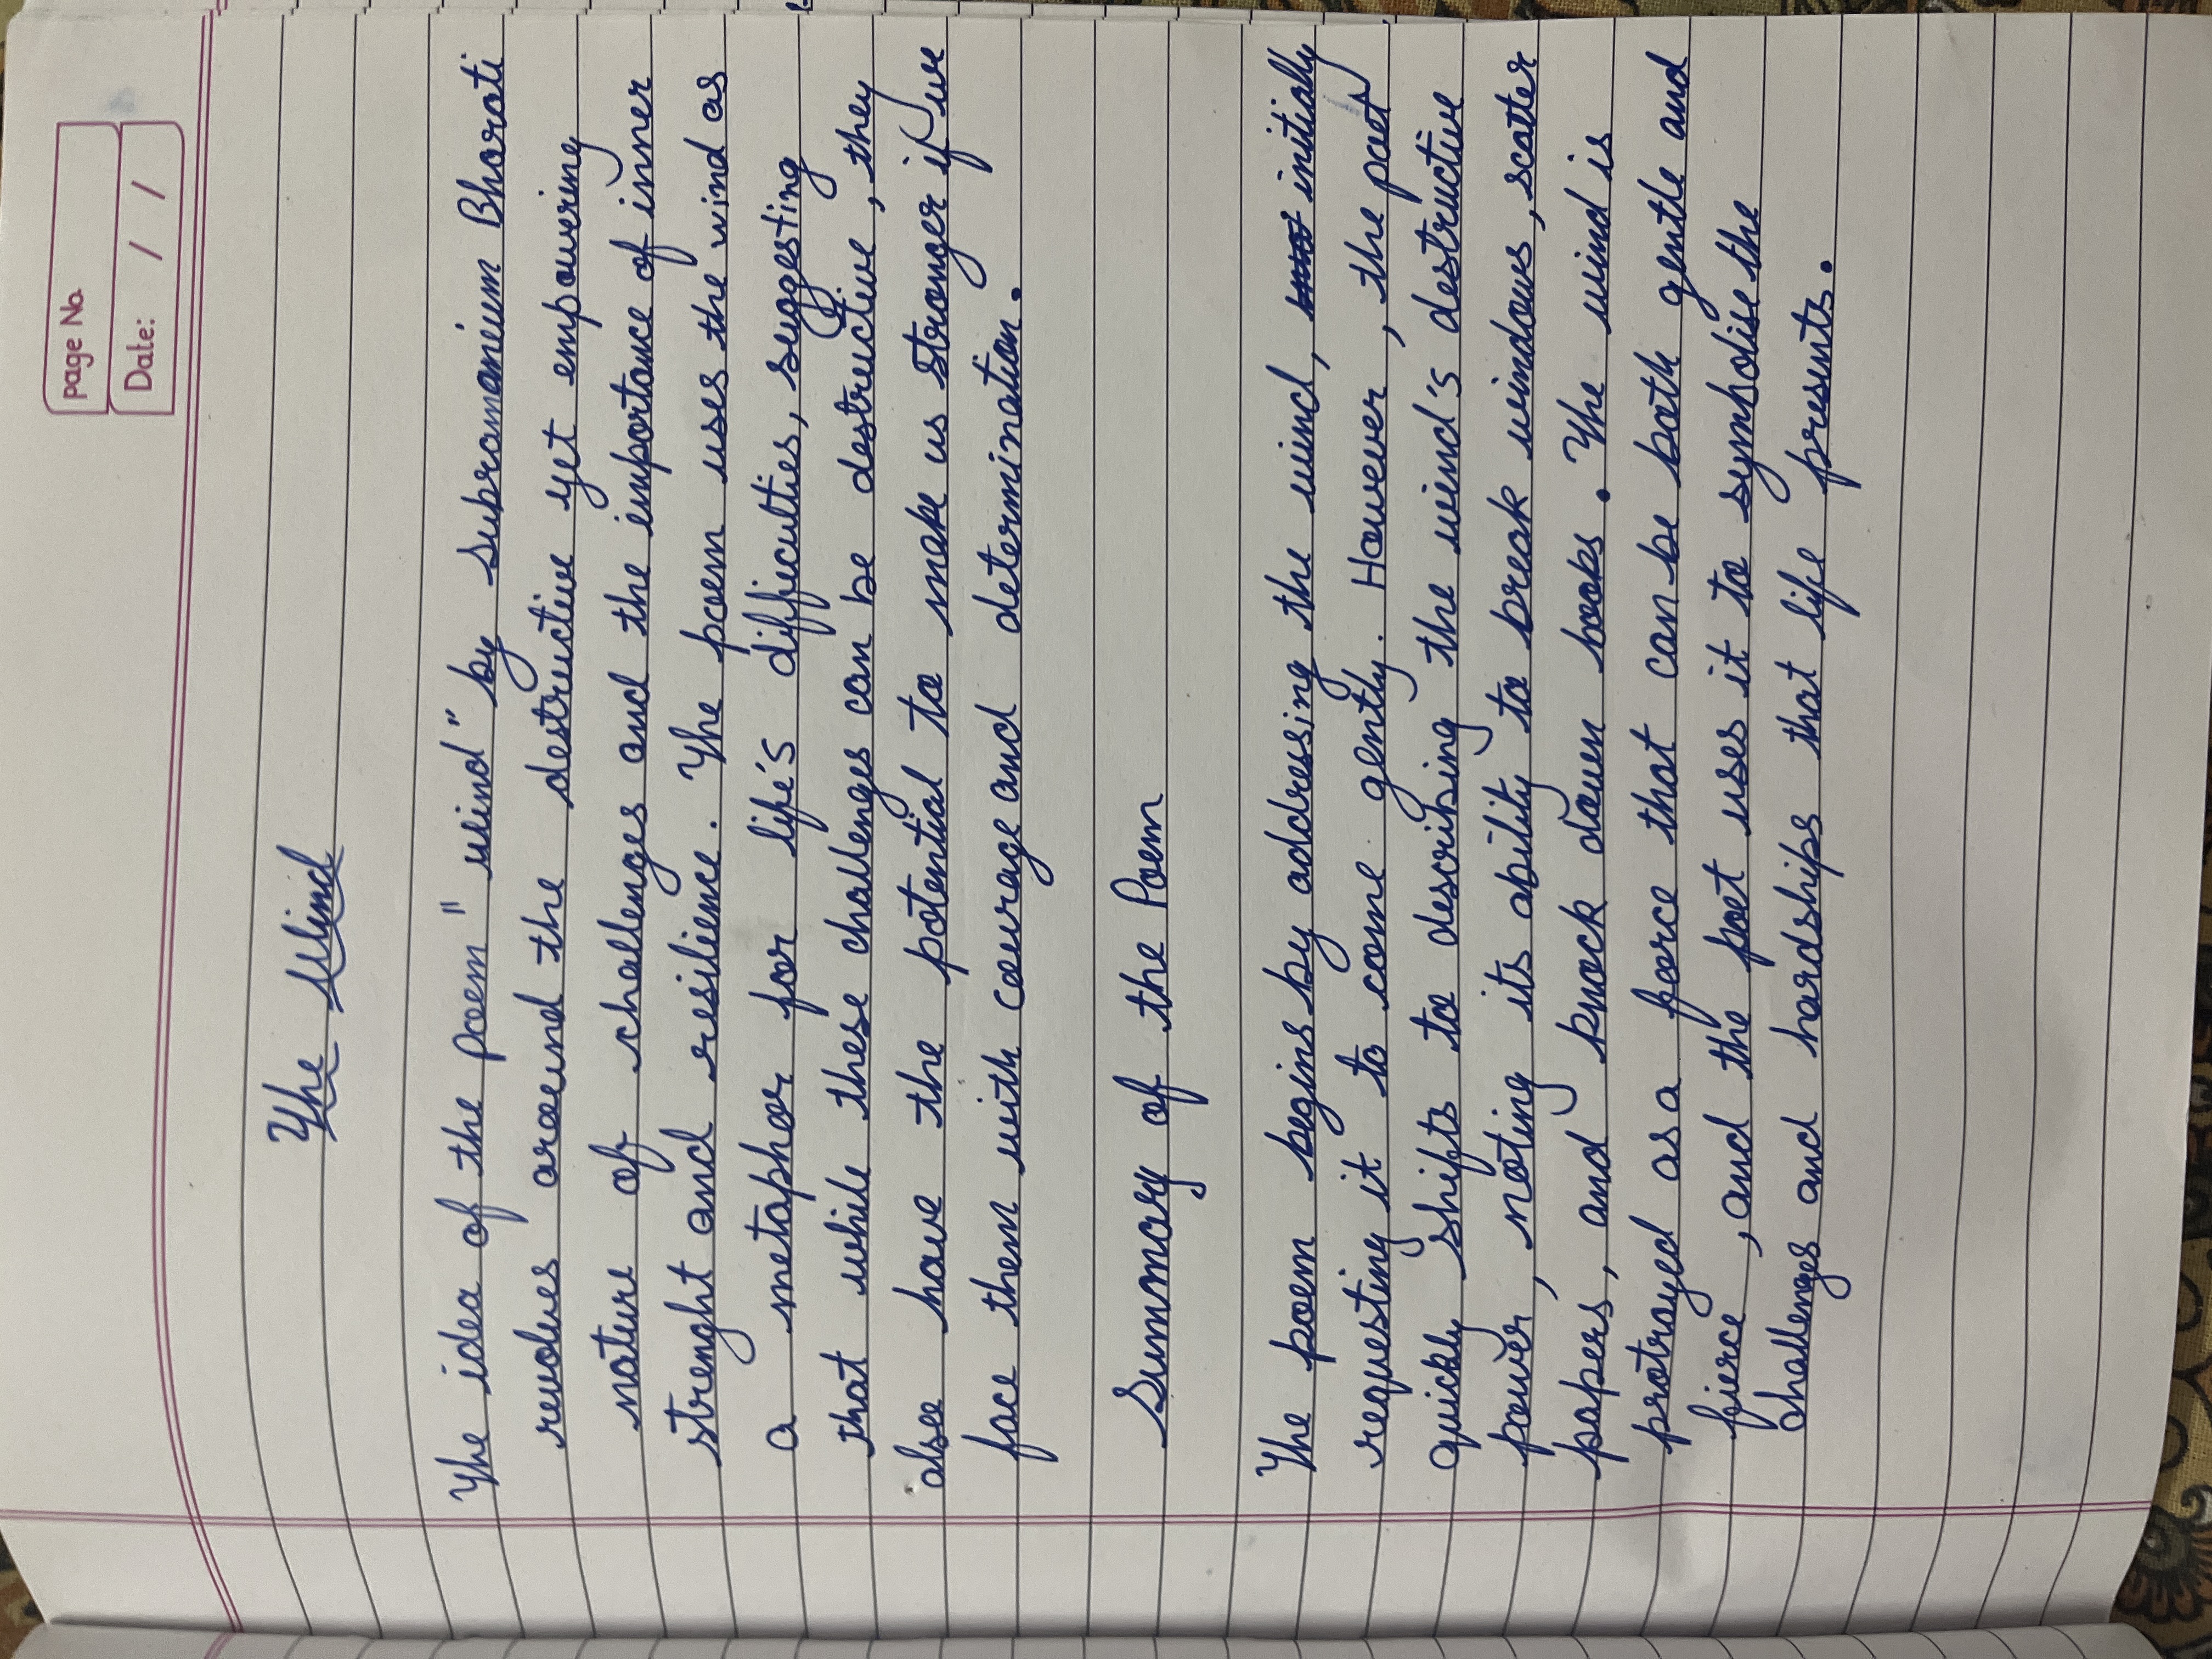 Page No.
Date: / /
The Wind
The idea of the poem "wind" by subramanium Bharati
revolves around the destructive yet empowering
nature of challenges and the importance of inner
strenght and resilience. The poem uses the wind as
a metaphor for life's difficulties, suggesting
that while these challenges can be destructive, they
also have the potential to make us stronger if we
face them with courage and determination.
Summary of the Poem
The poem begins by addressing the wind, initially
requesting it to come gently. However, the poet
quickly shifts to describing the wind's destructive
power, noting its ability to break windows, scatter
papers, and knock down books. The wind is
protrayed as a force that can be both gentle and
fierce, and the poet uses it to symbolise the
challenges and hardships that life presents.